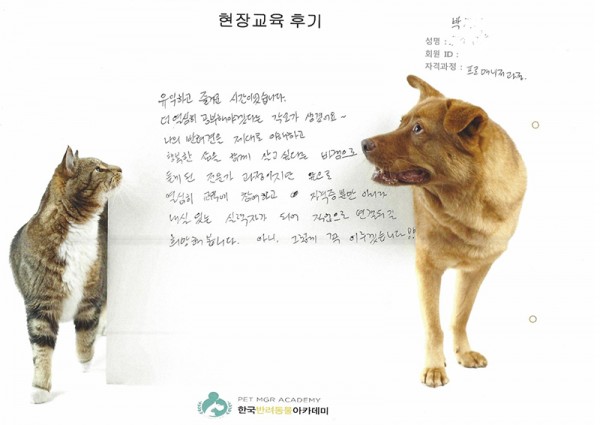 현장교육 후기
박
성명 :
회원 ID :
자격과정 : 프로매니저과정.
유익하고 즐거운 시간이었습니다.
더 열심히 공부해야겠다는 각오가 생겼어요~
나의 반려견을 제대로 이해하고
행복한 삶을 함께 살고 싶다는 바램으로
듣게 된 전문가 과정이지만 앞으로
열심히 교육에 참여하고 자격증뿐만 아니라
내실 있는 실력자가 되어 직업으로 연결되길
희망해 봅니다. 아니, 그렇게 꼭 이루겠습니다
PET MGR ACADEMY
한국반려동물아카데미